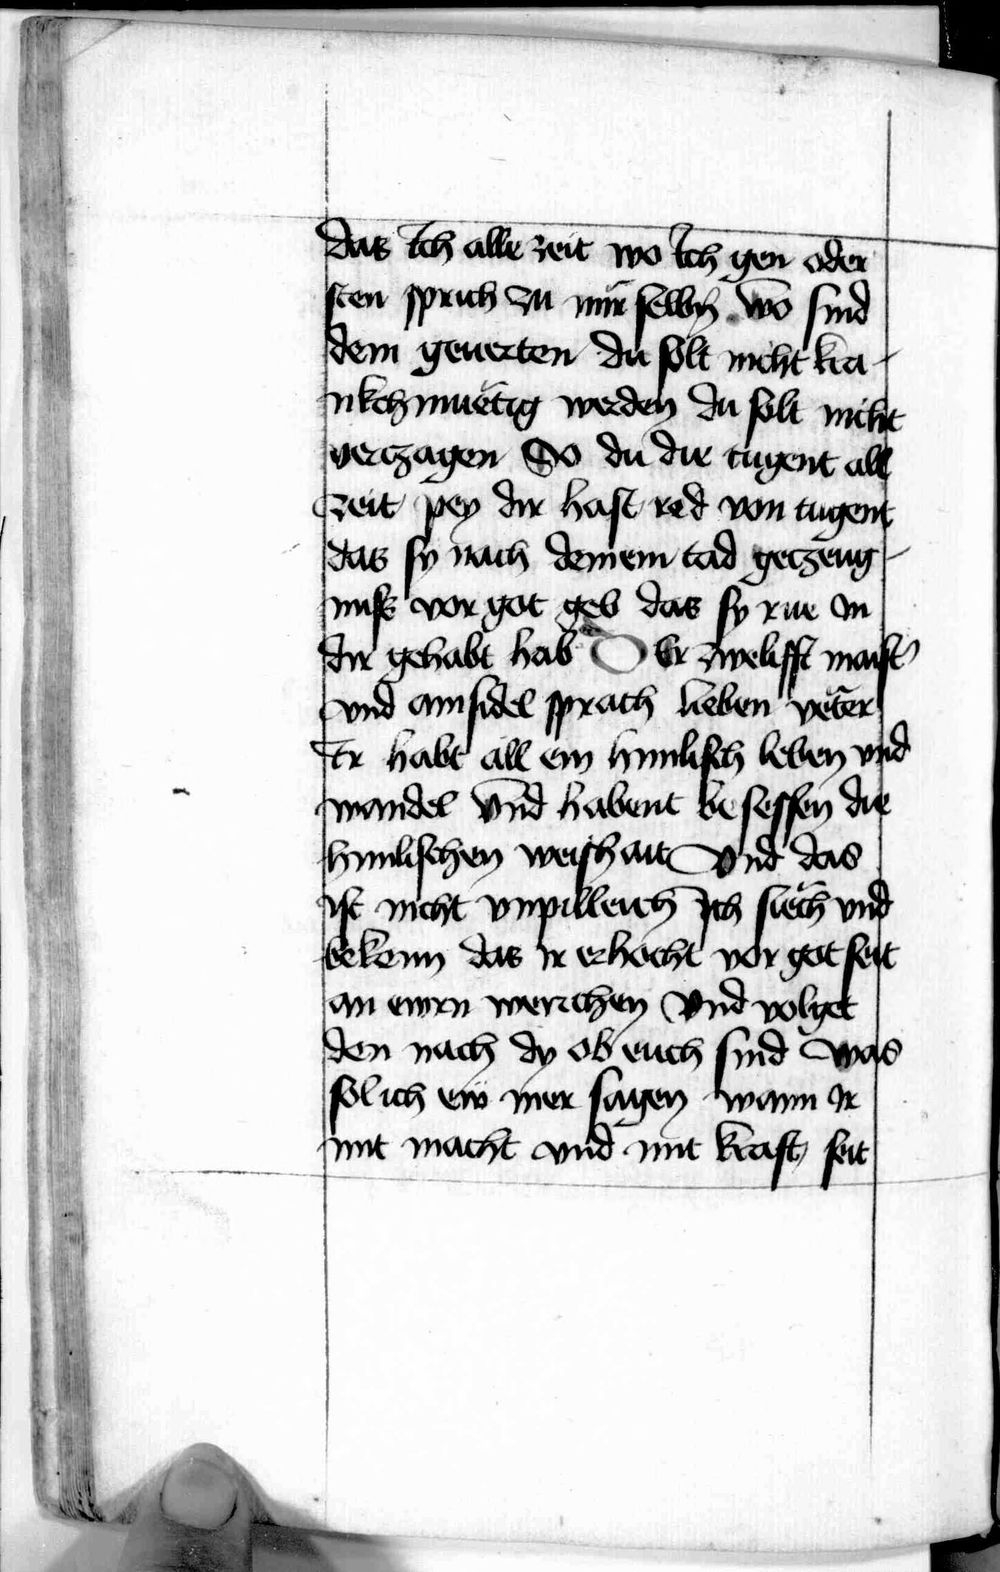 das Ich alle zeit wo Ich gen oder
sten sprich zu mir selbn wo sind
dein geuerten du solt nicht kra-
nkchmuetig werden du solt nicht
verczagen So du die tugent all
zeit pey dir hast red von tugent
das sy nach deinem tad geczeug-
nuss vor got geb das sy rue in
dir gehabt hab Der zwelifft maist
vnd ainsidel sprach lieben veter
Er habt all ein himlisch leben vnd
wandel vnd habent besessen die
himlischen weishait Vnd das
ist nicht vnpilleich Ich siech vnd
bekenn das ir erhocht vor got seit
an ewrn werchen Vnd volget
den nach dy ob euch sind Was
sol ich ew mer sagen wann Ir
mit macht vnd mit kraft seit